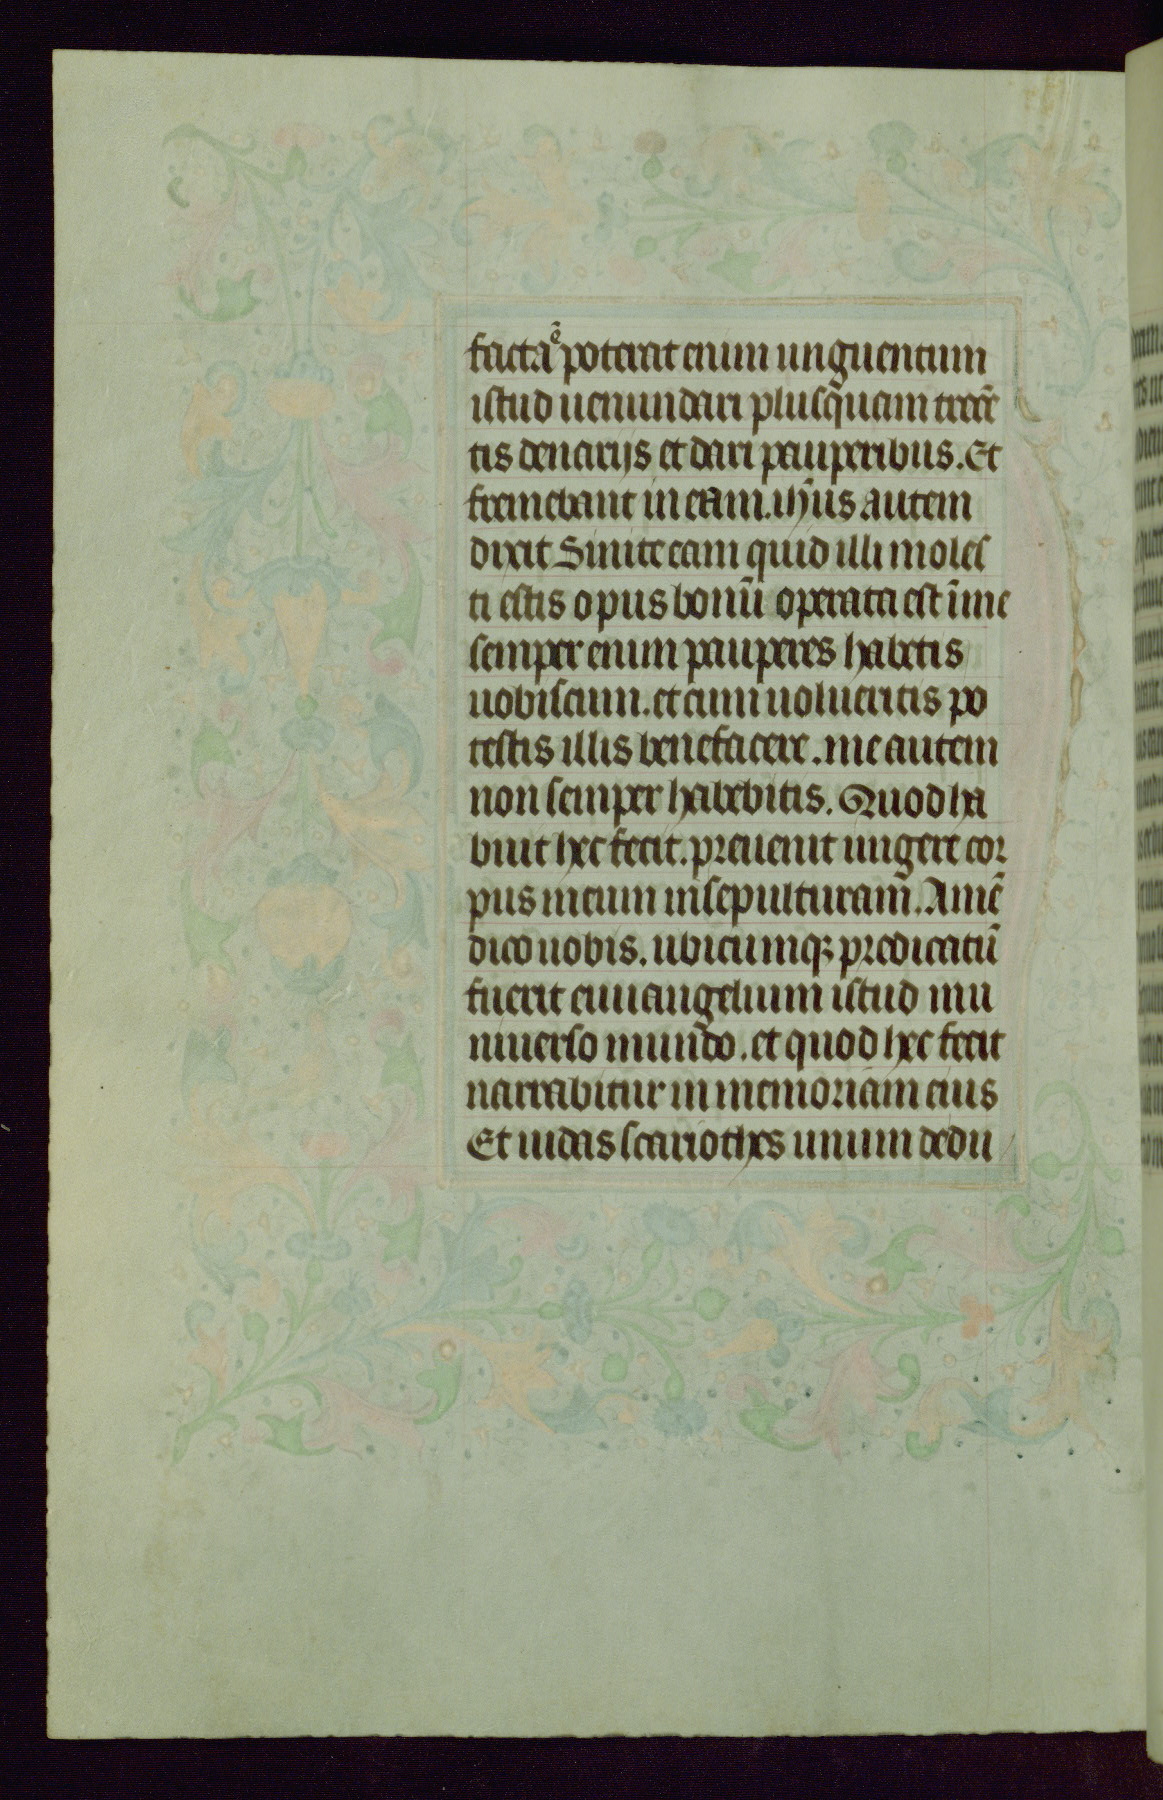 factaẽ poterat enim unguentum
istud uenundari plusquam trecẽ
tis denarijs et dari pauperibus. Et
fremebant in eam. ihũs autem
dixit Sinite eam quid illi moles
ti estis opus bonũ operata est ĩ me
semper enim pauperes habetis
uobiscum. et cum uolueritis po
testis illis benefacere. me autem
non semper habebitis. Quod ha
buit hec fecit. preuenit ungere cor
pus meum in sepulturam. Amẽ
dico uobis. ubicumqꝫ predicatũ
fuerit euuangelium istud inu
niuerso mundo. et quod hec fecit
narrabitur in memoriam eius
Et iudas scariothes unum dedu